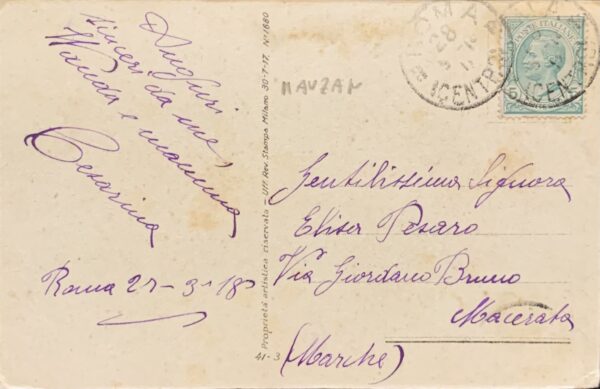 Auguri
sinceri da me,
Wanda e mamma
Cesarina
Roma 27-3-18
Proprietà artistica riservata - Uff. Rev. Stampa Milano 30-7-17. N° 1680
41-3
MAUZAN
ROMA
28
CENTRO
POSTE ITALIANE
CENTRO
Gentilissima Signora
Elisa Pesaro
Via Giordano Bruno
Macerata
(Marche)